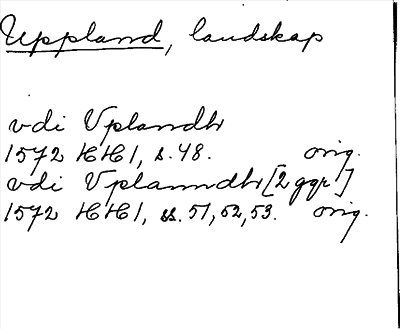 Uppland, landskap
vdi Vplandh
1572 HH1, s. 48. orig.
vdi Vplanndh [2 ggr]
1572 HH1, ss. 51, 52, 53. orig.